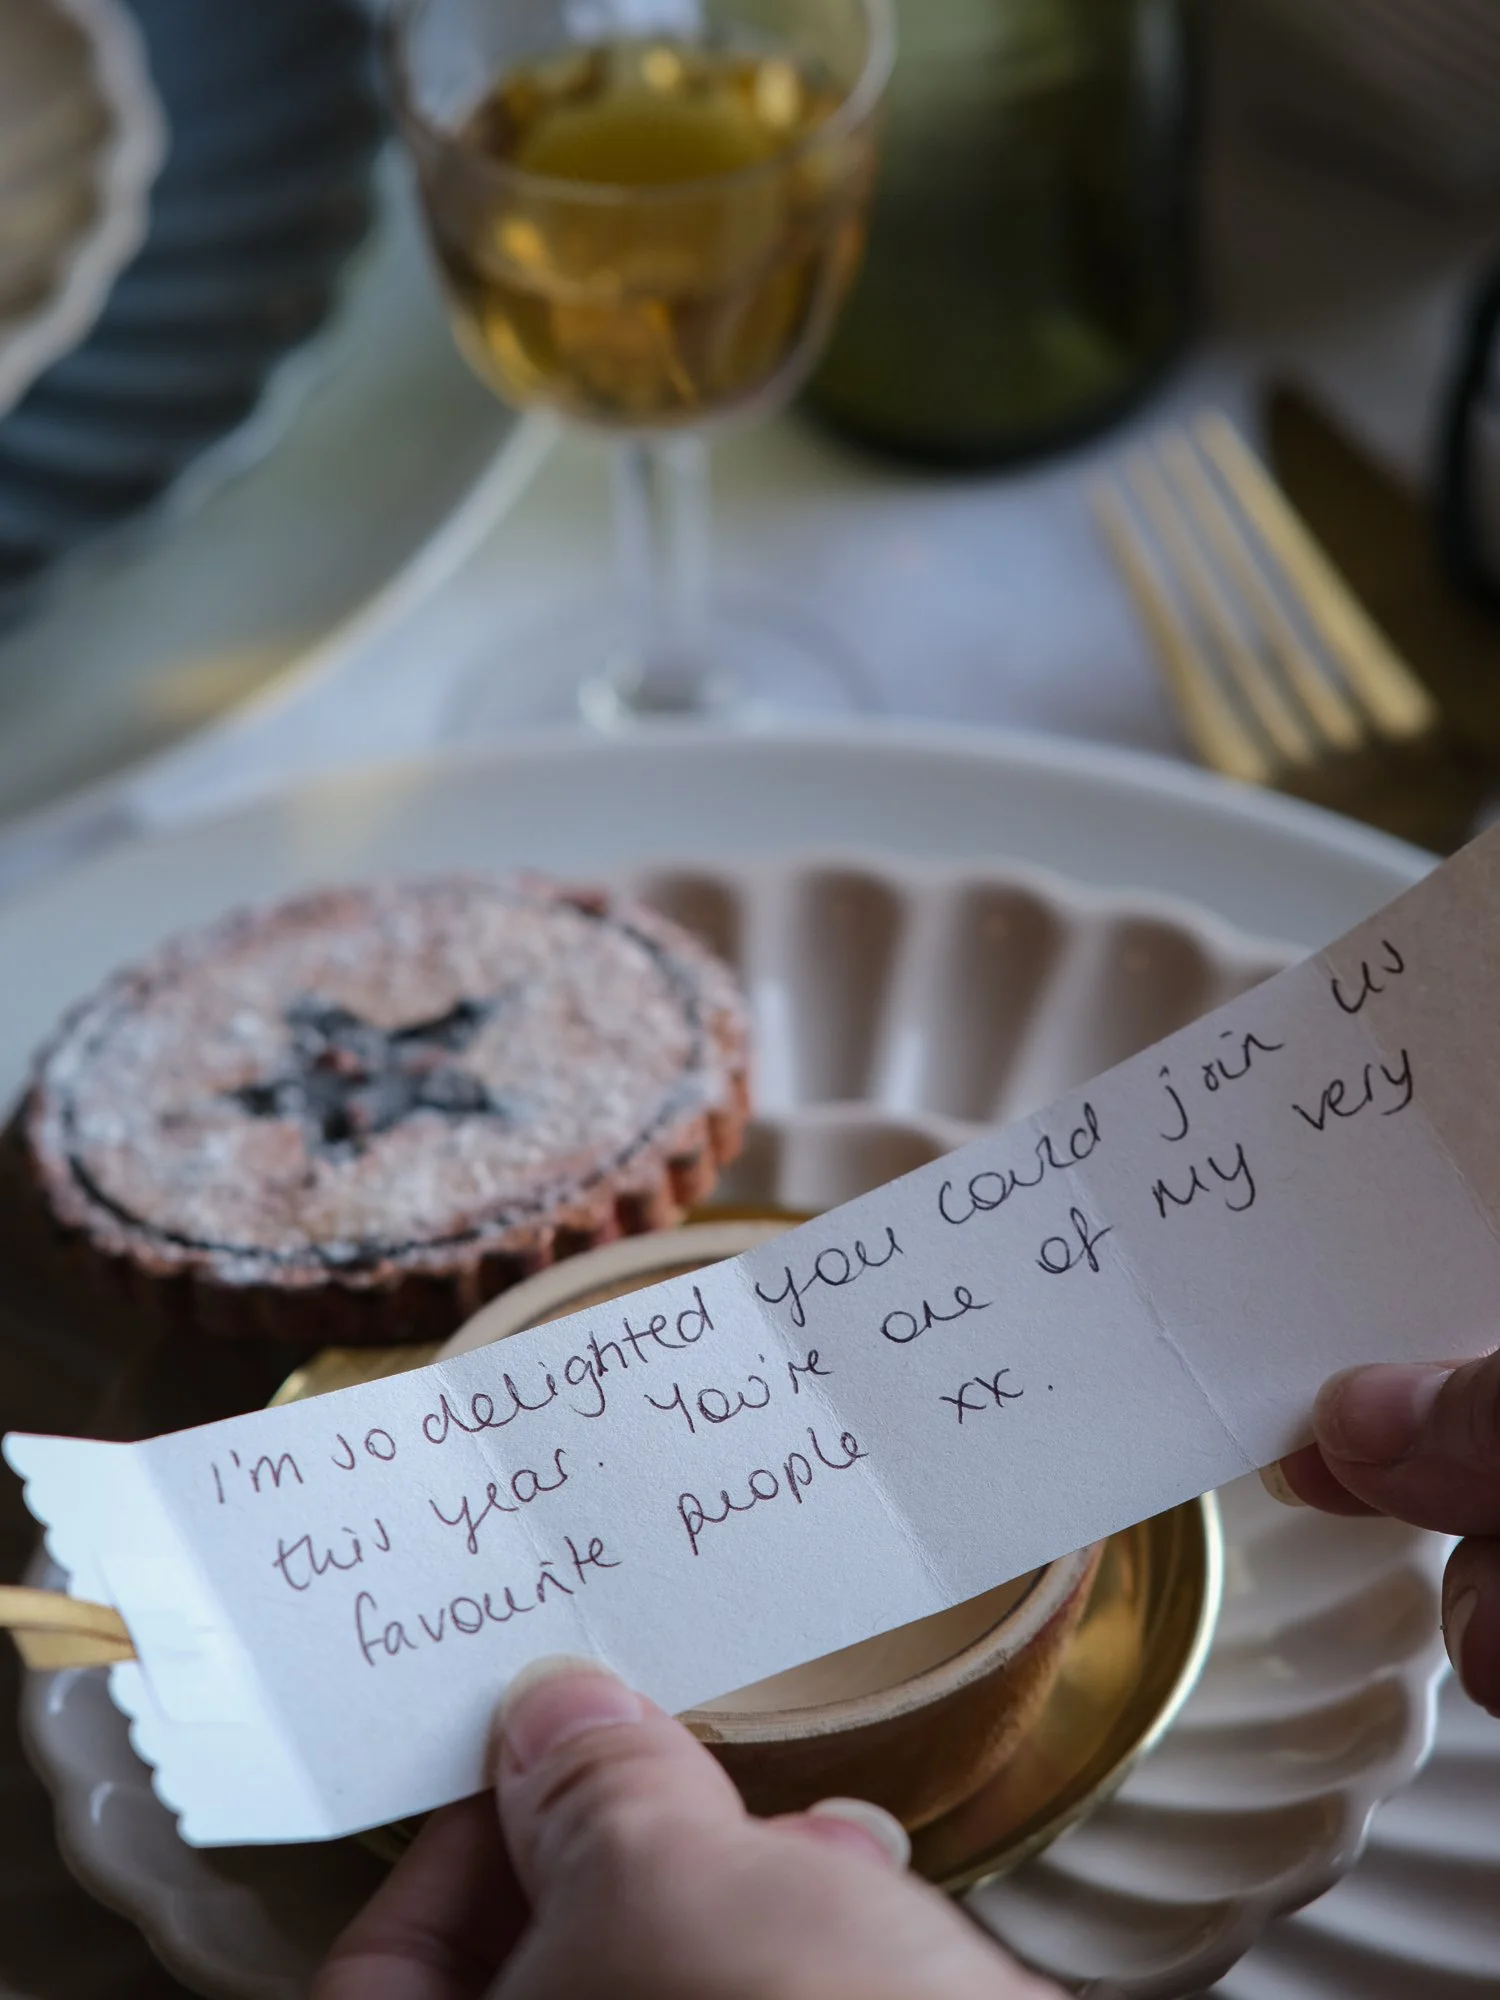 I'm so delighted you could join us
this year. You're one of my very
favourite people xx.